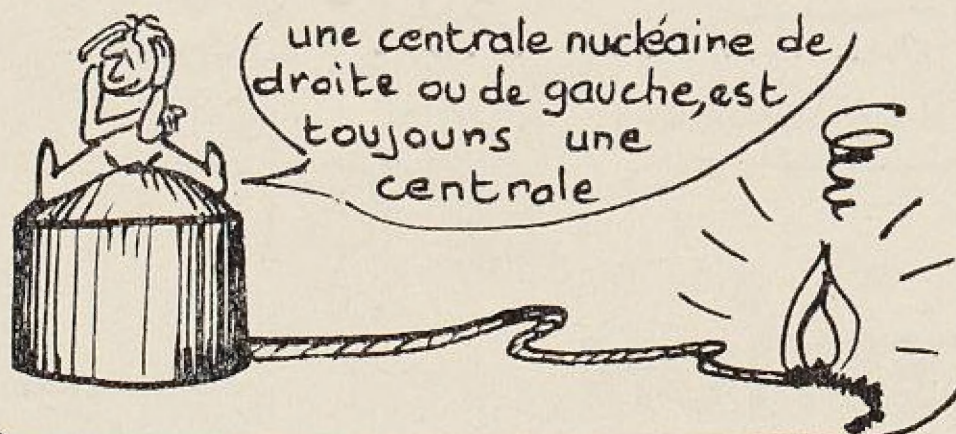 une centrale nucléaire de
droite ou de gauche, est
toujours une
centrale